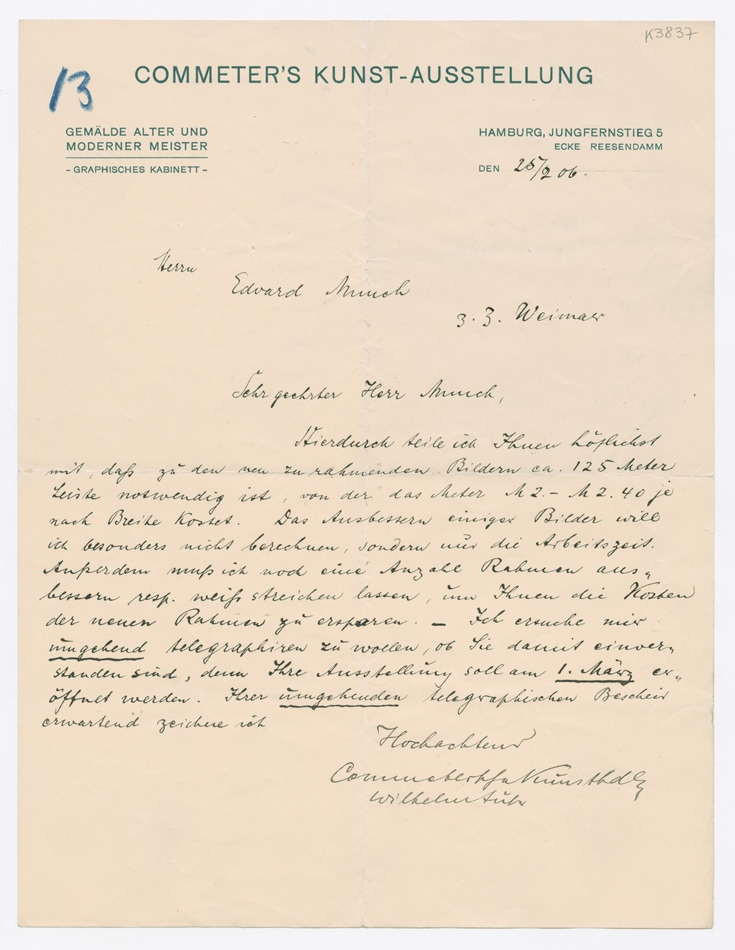 K3837
13
COMMETER'S KUNST-AUSSTELLUNG
GEMÄLDE ALTER UND
MODERNER MEISTER
- GRAPHISCHES KABINETT -
HAMBURG, JUNGFERNSTIEG 5
ECKE REESENDAMM
DEN 25/2 06.
Herrn
Edvard Munch
z. Z. Weimar
Sehr geehrter Herr Munch,
Hierdurch teile ich Ihnen höflichst
mit, daß zu den neu zu rahmenden Bildern ca. 125 Meter
Leiste notwendig ist, von der das Meter M 2.- M 2.40 je
nach Breite kostet. Das Ausbessern einiger Bilder will
ich besonders nicht berechnen, sondern nur die Arbeitszeit.
Außerdem muß ich noch eine Anzahl Rahmen aus„
bessern resp. weiß streichen lassen, um Ihnen die Kosten
der neuen Rahmen zu ersparen. — Ich ersuche mir
umgehend telegraphiren zu wollen, ob Sie damit einver„
standen sind, denn Ihre Ausstellung soll am 1. März er„
öffnet werden. Ihrer umgehenden telegraphischen Bescheid
erwartend zeichne ich
Hochachtend
Commetersche Kunsthdlg
Wilhelm Suhr